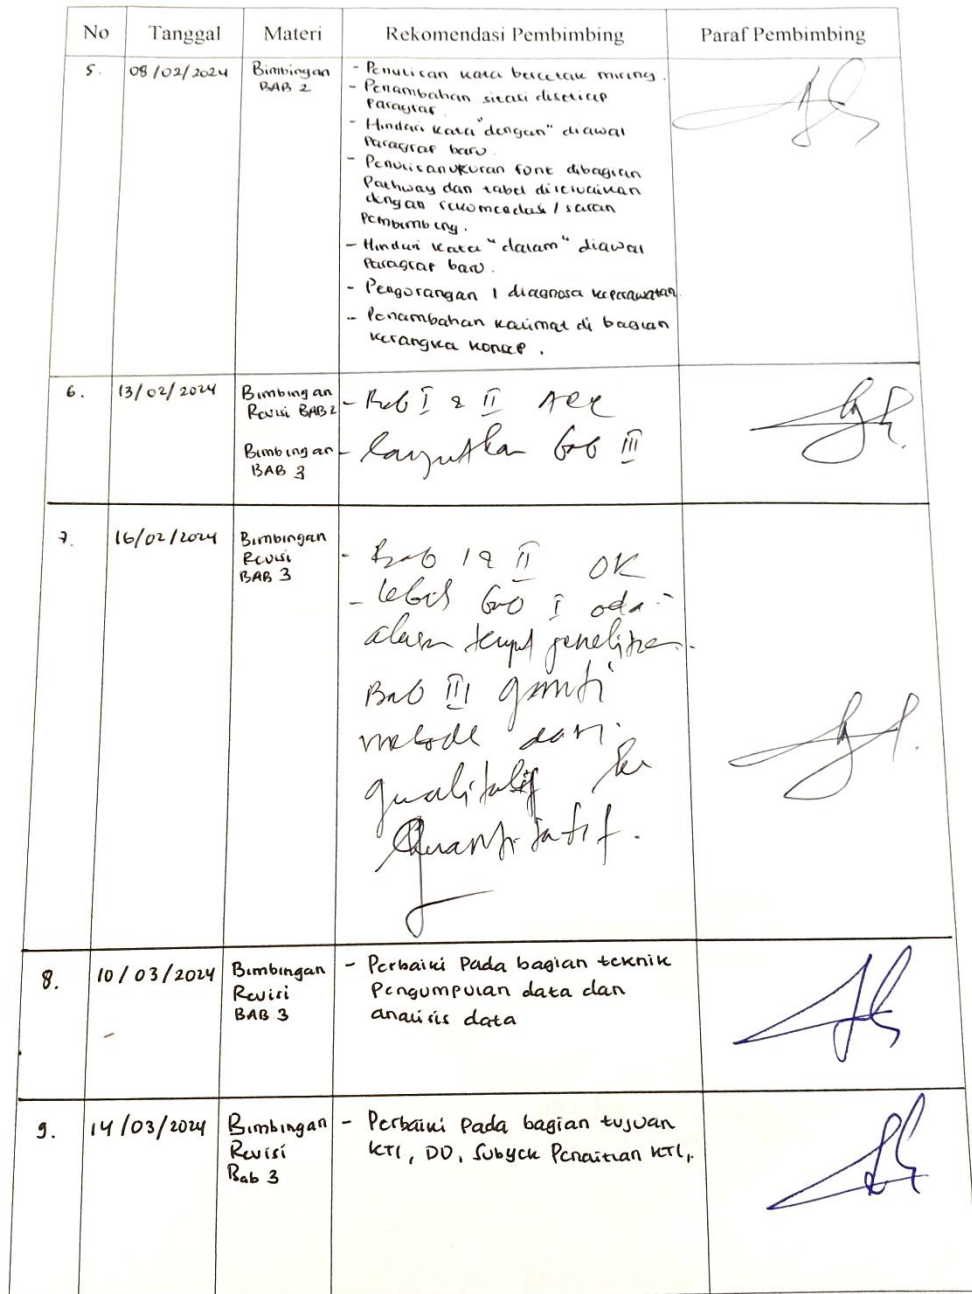 No Tanggal Materi Rekomendasi Pembimbing Paraf Pembimbing
5. 08/02/2024 Bimbingan BAB 2
- Penulisan kata bercetak miring.
- Penambahan sitasi disetiap
Paragraf.
- Hindari kata "dengan" diawal
Paragraf baru.
- Penulisan ukuran font dibagian
Pathway dan tabel disesuaikan
dengan rekomendasi / saran
Pembimbing.
- Hindari kata "dalam" diawal
Paragraf baru.
- Pengurangan 1 diagnosa keperawatan
- Penambahan kalimat di bagian
kerangka konsep.
6. 13/02/2024 Bimbingan
Revisi BAB 2
Bimbingan
BAB 3
- Bab I & II Acc
- Lanjutkan bab III
7. 16/02/2024 Bimbingan
Revisi
BAB 3
- Bab I & II OK
alasan tempat penelitian.
Bab III ganti
metode dari
qualitatif ke
Quantitatif.
8. 10/03/2024 Bimbingan
Revisi
BAB 3
- Perbaiki Pada bagian teknik
Pengumpulan data dan
analisis data
9. 14/03/2024 Bimbingan
Revisi
Bab 3
- Perbaiki Pada bagian tujuan
KTI, DO, Subyek Penelitian KTI,